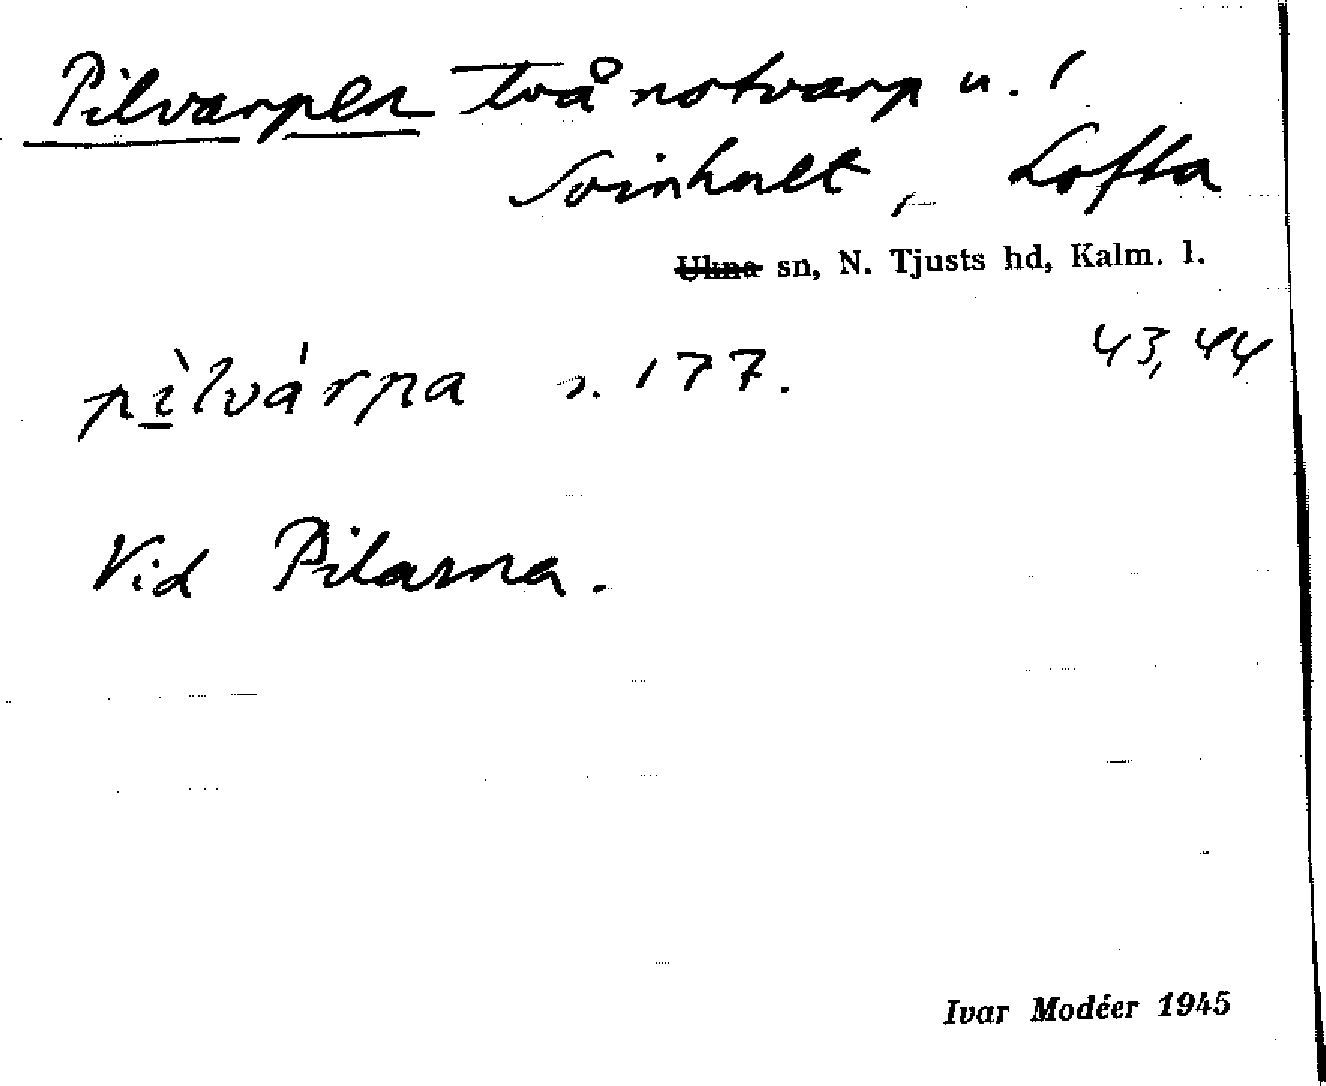 Pilvarpen två notvarp u. /
Svinhult, Lofta
Ukna sn, N. Tjusts hd, Kalm. l.
43, 44
pìlvárpa s. 177.
Vid Pilarna.
Ivar Modéer 1945